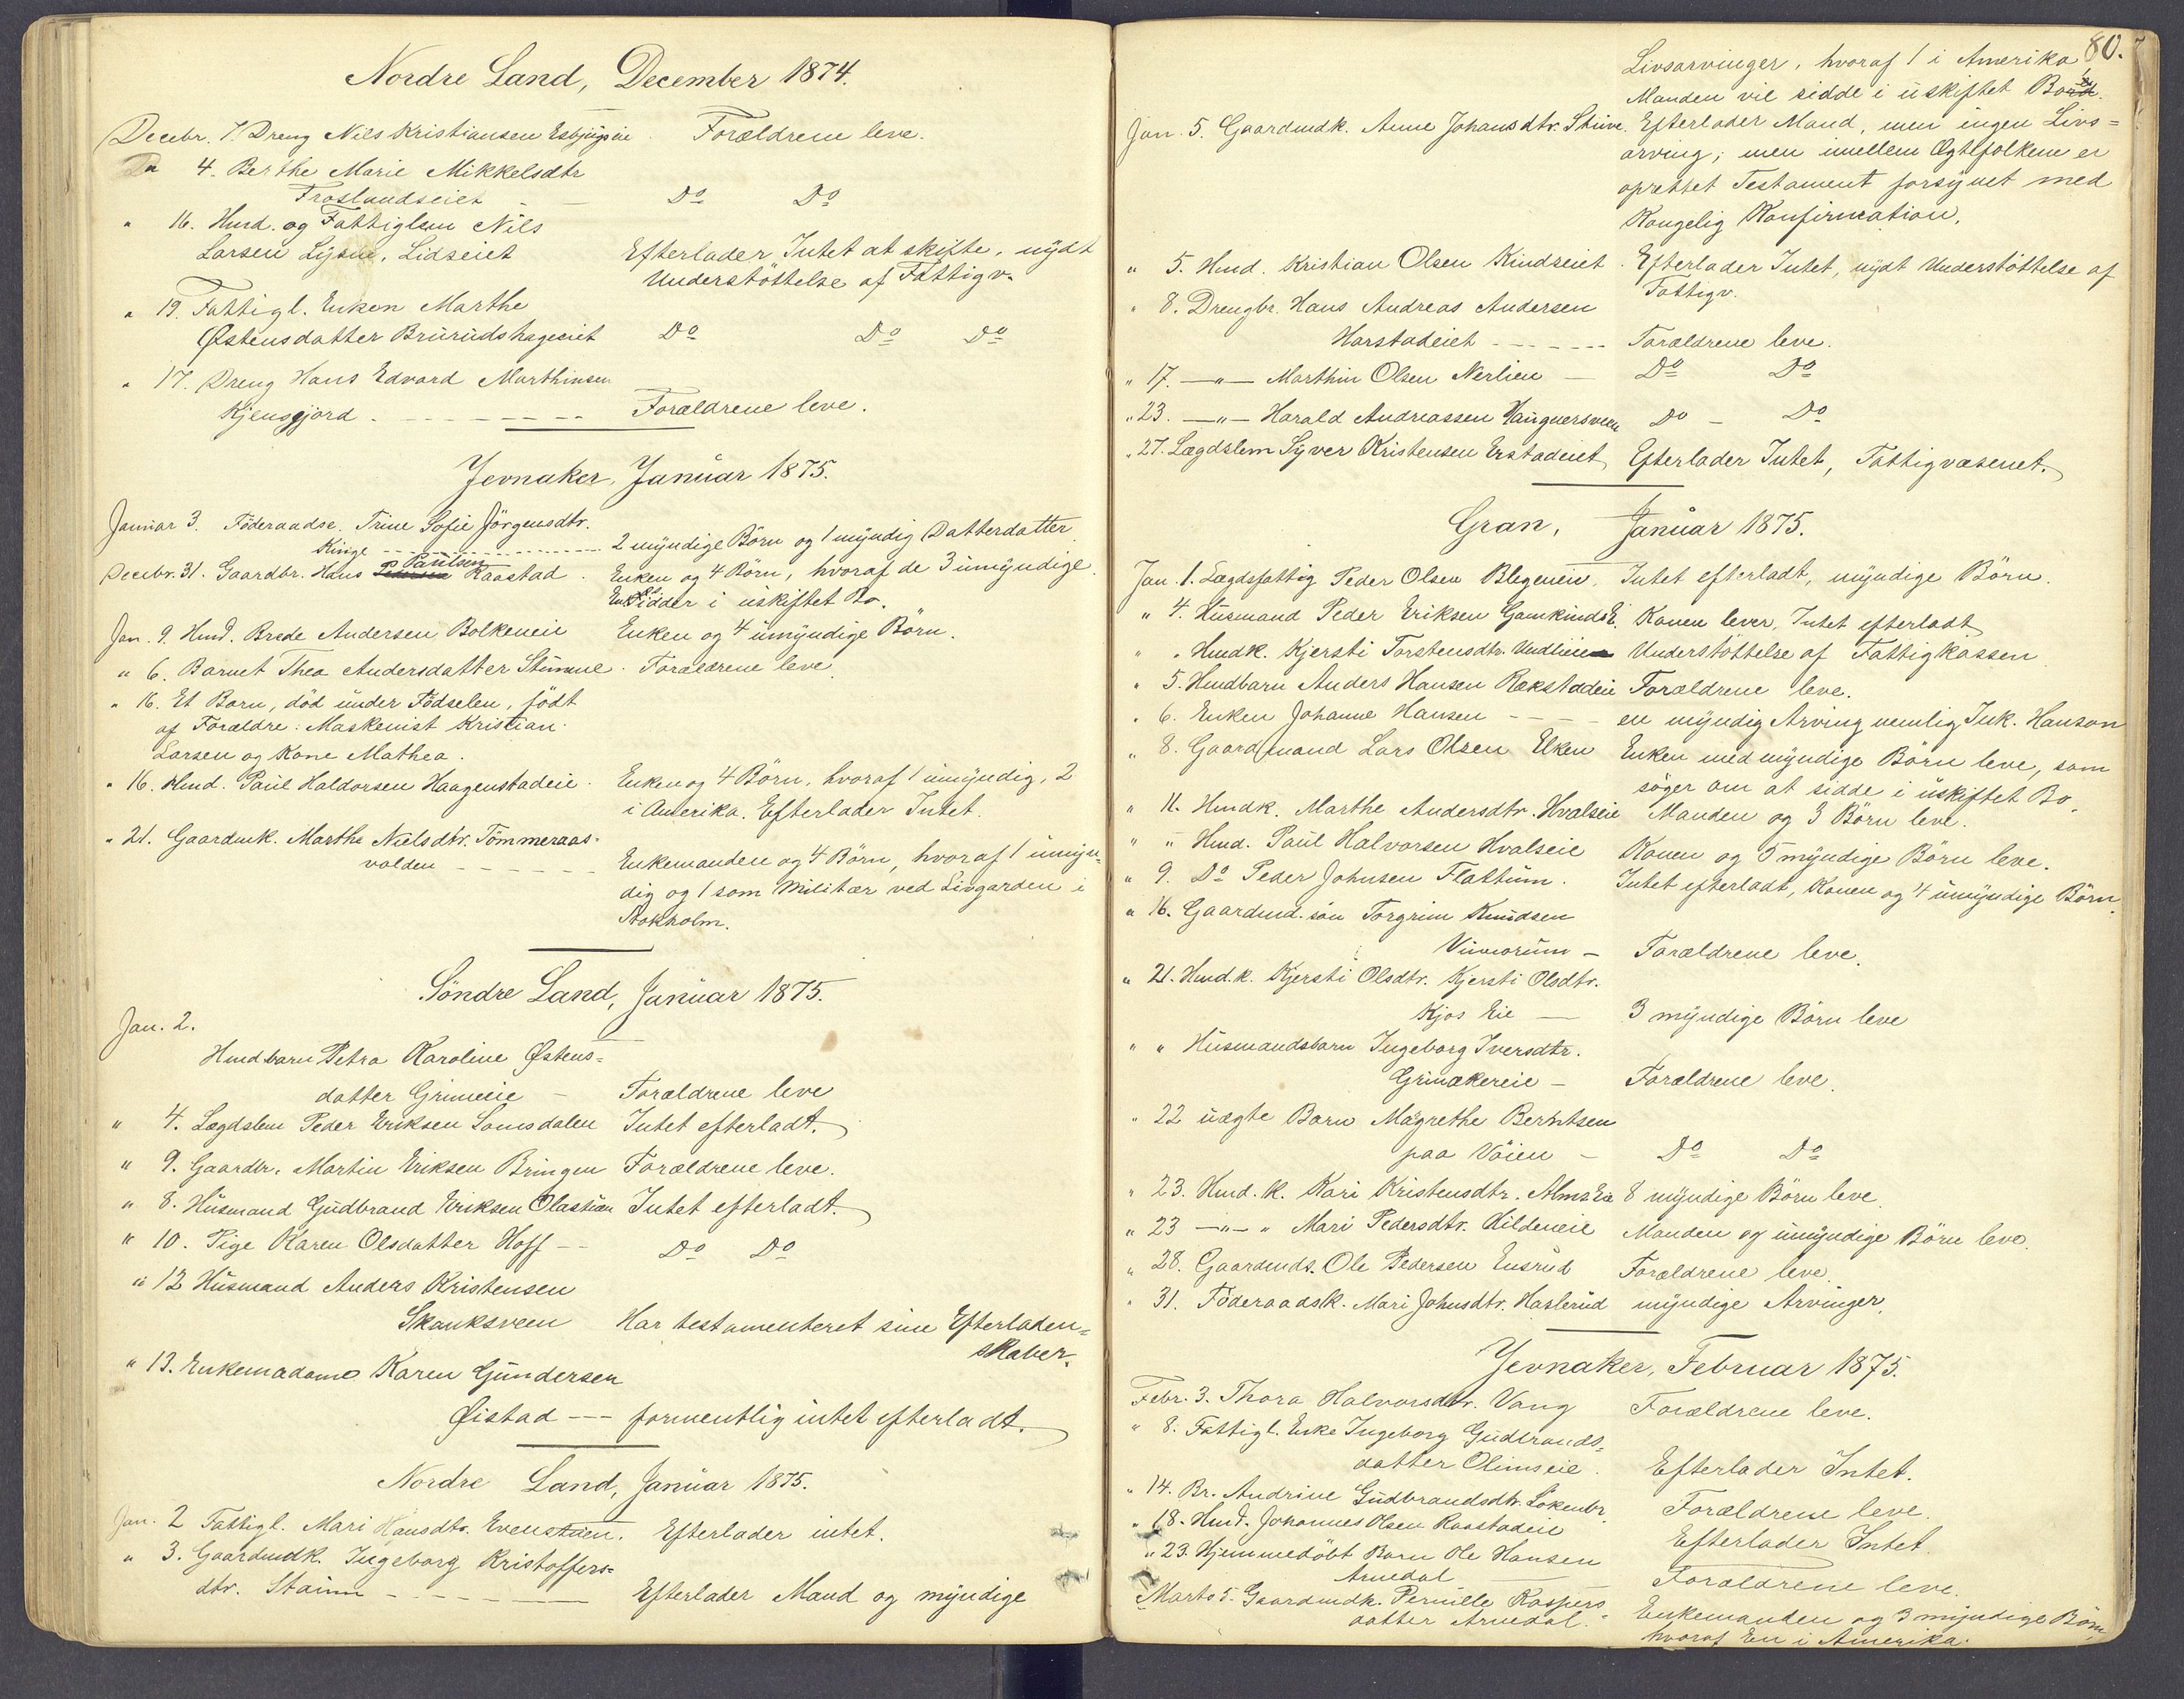 Nordre Land, December 1874.
Decebr. 7. Dreng Nils Kristiansen Forældrene leve.
" 4. Berthe Marie Mikkelsdtr
Froslandseiet - Do Do
" 16. Hmd. og Fattiglem Nils
Larsen Lysne, Lidseiet Efterlader Intet at skifte, nydt
Understöttelse af Fattigv.
" 19. Fattigl. Enken Marthe
Østensdatter Brurudshageeiet Do Do Do
" 17. Dreng Hans Edvard Marthinsen
Kjensgjord - - - Forældrene leve.
Jevnaker, Januar 1875.
Januar 3. Föderaadse. Trine Sofie Jörgensdtr.
Kinge - - - 2 myndige Börn og 1 myndig Datterdatter
Decbr. 31. Gaardbr. Hans Paulsen Raastad. Enken og 4 Börn, hvoraf de 3 umyndige.
Enken sidder i uskiftet Bo.
Jan. 9. Hmd. Brede Andersen Bolkeneie Enken og 4 umyndige Börn.
" 6. Barnet Thea Andersdatter Forældrene leve
" 16. Et Barn, död under Födselen, födt
af Forældre: Maskenist Kristian
Larsen og Kone Mathea.
" 16. Hmd. Paul Haldorsen Haagenstadeie. Enken og 4 Börn, hvoraf 1 umyndig, 2
i Amerika. Efterlader Intet.
" 21. Gaardmk. Marthe Nielsdtr. Tömmeraas-
volden - - - Enkemanden og 4 Börn, hvoraf 1 umyn-
dig og 1 som Militær ved Livgarden i
Stokholm.
Söndre Land, Januar 1875.
Jan. 2.
Hmdbarn Petra Karoline Østens=
datter Grimeie - Forældrene leve
" 4. Lægdslem Peder Eriksen Lomsdalen Intet efterladt.
" 9. Gaardbr. Martin Eriksen Bringen Forældrene leve.
" 8. Husmand Gudbrand Eriksen Olastuen Intet efterladt.
" 10. Pige Karen Olsdatter Hoff - - Do Do
" 12 Husmand Anders Kristensen
Skanksveen Har testamenteret sine Efterladen=
skaber.
" 13. Enkemadame Karen Gundersen
Øistad --- formentlig intet efterladt.
Nordre Land, Januar 1875.
Jan. 2 Fattigl. Mari Hansdtr. Evenstuen. Efterlader intet.
" 3. Gaardmdk. Ingeborg Kristoffers=
dtr. - - - Efterlader Mand og myndige
80.
Livsarvinger, hvoraf 1 i Amerika,
Manden vil sidde i uskiftet Bo.
Jan. 5. Gaardmdk. Anne Johansdtr. Efterlader Mand, men ingen Livs=
arving; men imellem Ægtefolkene er
oprettet Testament forsynet med
Kongelig Konfirmation.
" 5. Hmd. Kristian Olsen Kindseiet Efterlader Intet, nydt Understöttelse af
Fattigv.
" 8. Drengbr. Hans Andreas Andersen
Horstadeiet - - - Forældrene leve.
" 17. -"- Marthin Olsen Nerlien - Do Do
" 23. -"- Harald Andreassen Haugnersveen Do - Do
" 27. Lægdslem Syver Kristensen Erstadeiet Efterlader Intet, Fattigvæsenet.
Gran, Januar 1875.
Jan. 1. Lægdsfattig Peder Olsen Intet efterladt, myndige Börn.
" 4. Husmand Peder Eriksen GamkindsE. Konen lever, Intet efterladt
" " Hmdk. Kjersti Torstensdtr. Understöttelse af Fattigkassen
" 5. Hmdbarn Anders Hansen Rækstadeie Forældrene leve.
" 6. Enken Johanne Hansen - - - en myndig Arving nemlig Hanson
" 8. Gaardmand Lars Olsen Elken Enken med myndige Börn leve, som
söger om at sidde i uskiftet Bo.
" 11. Hmdk. Marthe Andersdtr. Hvalseie Manden og 3 Börn leve.
" " Hmd. Paul Halvorsen Hvalseie Konen og 5 myndige Börn leve.
" 9. Do Peder Johnsen Flattum. Intet efterladt, Konen og 4 umyndige Börn.
" 16. Gaardmd. sön Torgrim Knudsen
- Forældrene leve.
" 21. Hmd.k. Kjersti Olsdtr. Kjersti Olsdtr.
Kjos Eie - 3 myndige Börn leve
" " Husmandsbarn Ingeborg Iversdtr.
Grinakereie - Forældrene leve.
" 22 uægte Barn Magrethe Berntsen
paa Vöien - Do Do
" 23. Hmd. k. Kari Kristensdtr. AlmsEie 8 myndige Börn leve.
" 23 -"- " Mari Pedersdtr. Hildeneie Manden og umyndige Börn leve.
" 28. Gaardmds. Ole Pedersen Ensrud Forældrene leve.
" 31. Föderaadsk. Mari Johnsdtr. Haslerud myndige Arvinger.
Jevnaker, Februar 1875.
Febr. 3. Thora Halvorsdtr. Vang Forældrene leve.
" 8. Fattigl. Enke Ingeborg Gudbrands=
datter Olimseie. Efterlader Intet.
" 14. Br. Andrine Gudbrandsdtr. Lökenbr. Forældrene leve.
" 18. Hmd. Johannes Olsen Raastadeie Efterlader Intet.
" 23. Hjemmedöbt Barn Ole Hansen
Arnedal Forældrene leve.
Marts 5. Gaardmdk. Pernille Kaspers
datter Arnedal. Enkemanden og 3 myndige Börn,
hvoraf En i Amerika.